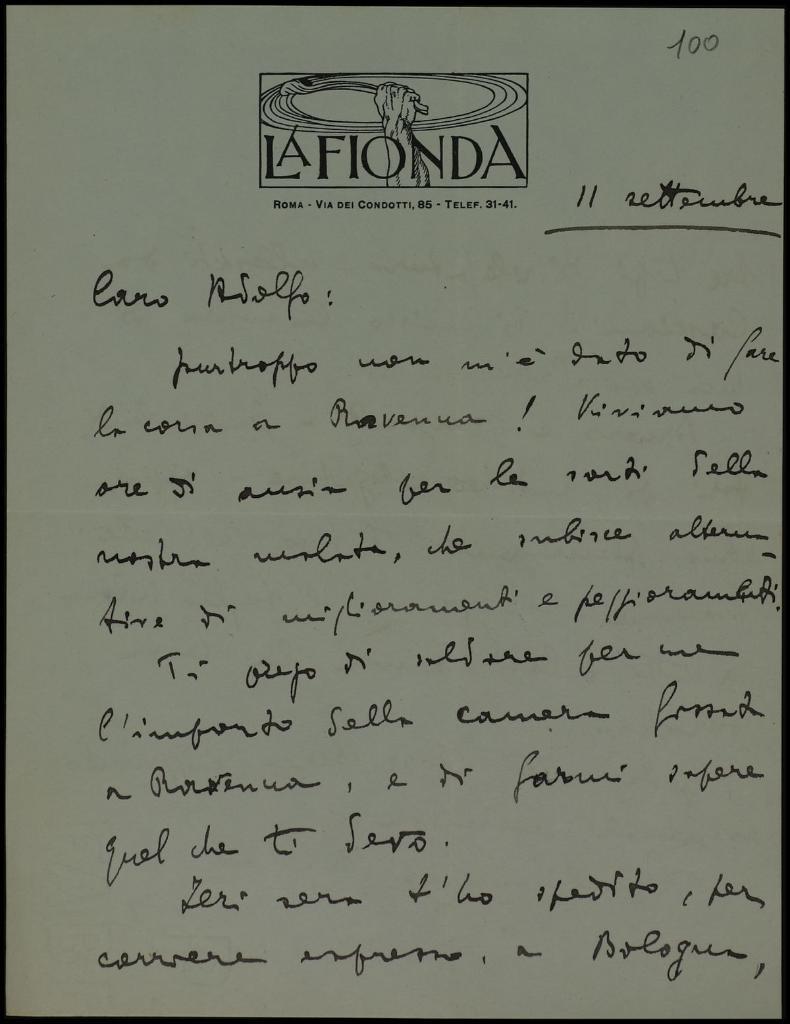 100
LA FIONDA
ROMA - VIA DEI CONDOTTI, 85 - TELEF. 31-41.
11 settembre
Caro Adolfo:
purtroppo non m'è dato di fare
la corsa a Ravenna! Viviamo
ore di ansia per le sorti della
nostra malata, che subisce alterna-
tive di miglioramenti e peggioramenti.
Ti prego di saldare per me
l'importo della camera fissata
a Ravenna, e di farmi sapere
quel che ti devo.
Ieri sera t'ho spedito, per
corriere espresso, a Bologna,